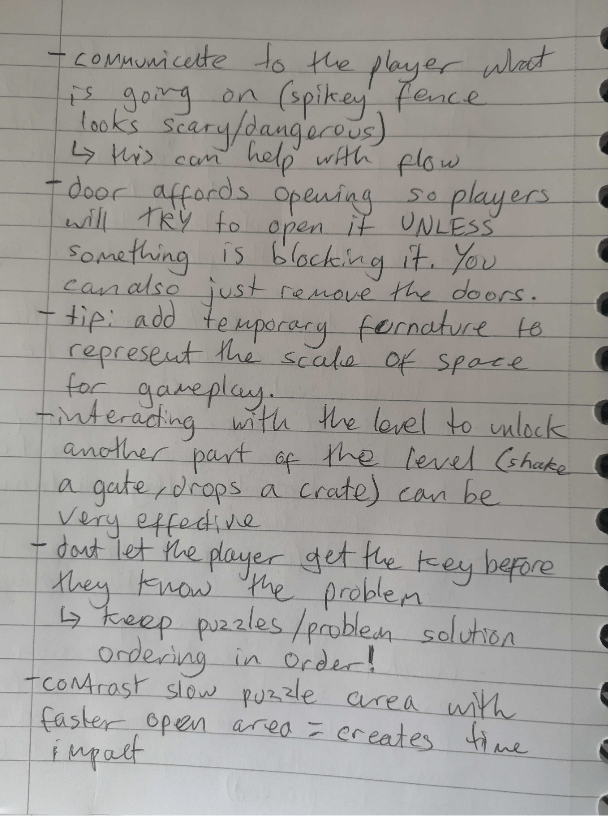 - communicate to the player what
is going on (spikey fence
looks scary/dangerous)
↳ this can help with flow
- door affords opening so players
will TRY to open it UNLESS
something is blocking it. You
can also just remove the doors.
- tip: add temporary fornature to
represent the scale of space
for gameplay.
- interacting with the level to unlock
another part of the level (shake
a gate, drops a crate) can be
very effective
- dont let the player get the key before
they know the problem
↳ keep puzzles/problem solution
ordering in order!
- contrast slow puzzle area with
faster open area = creates time
impact